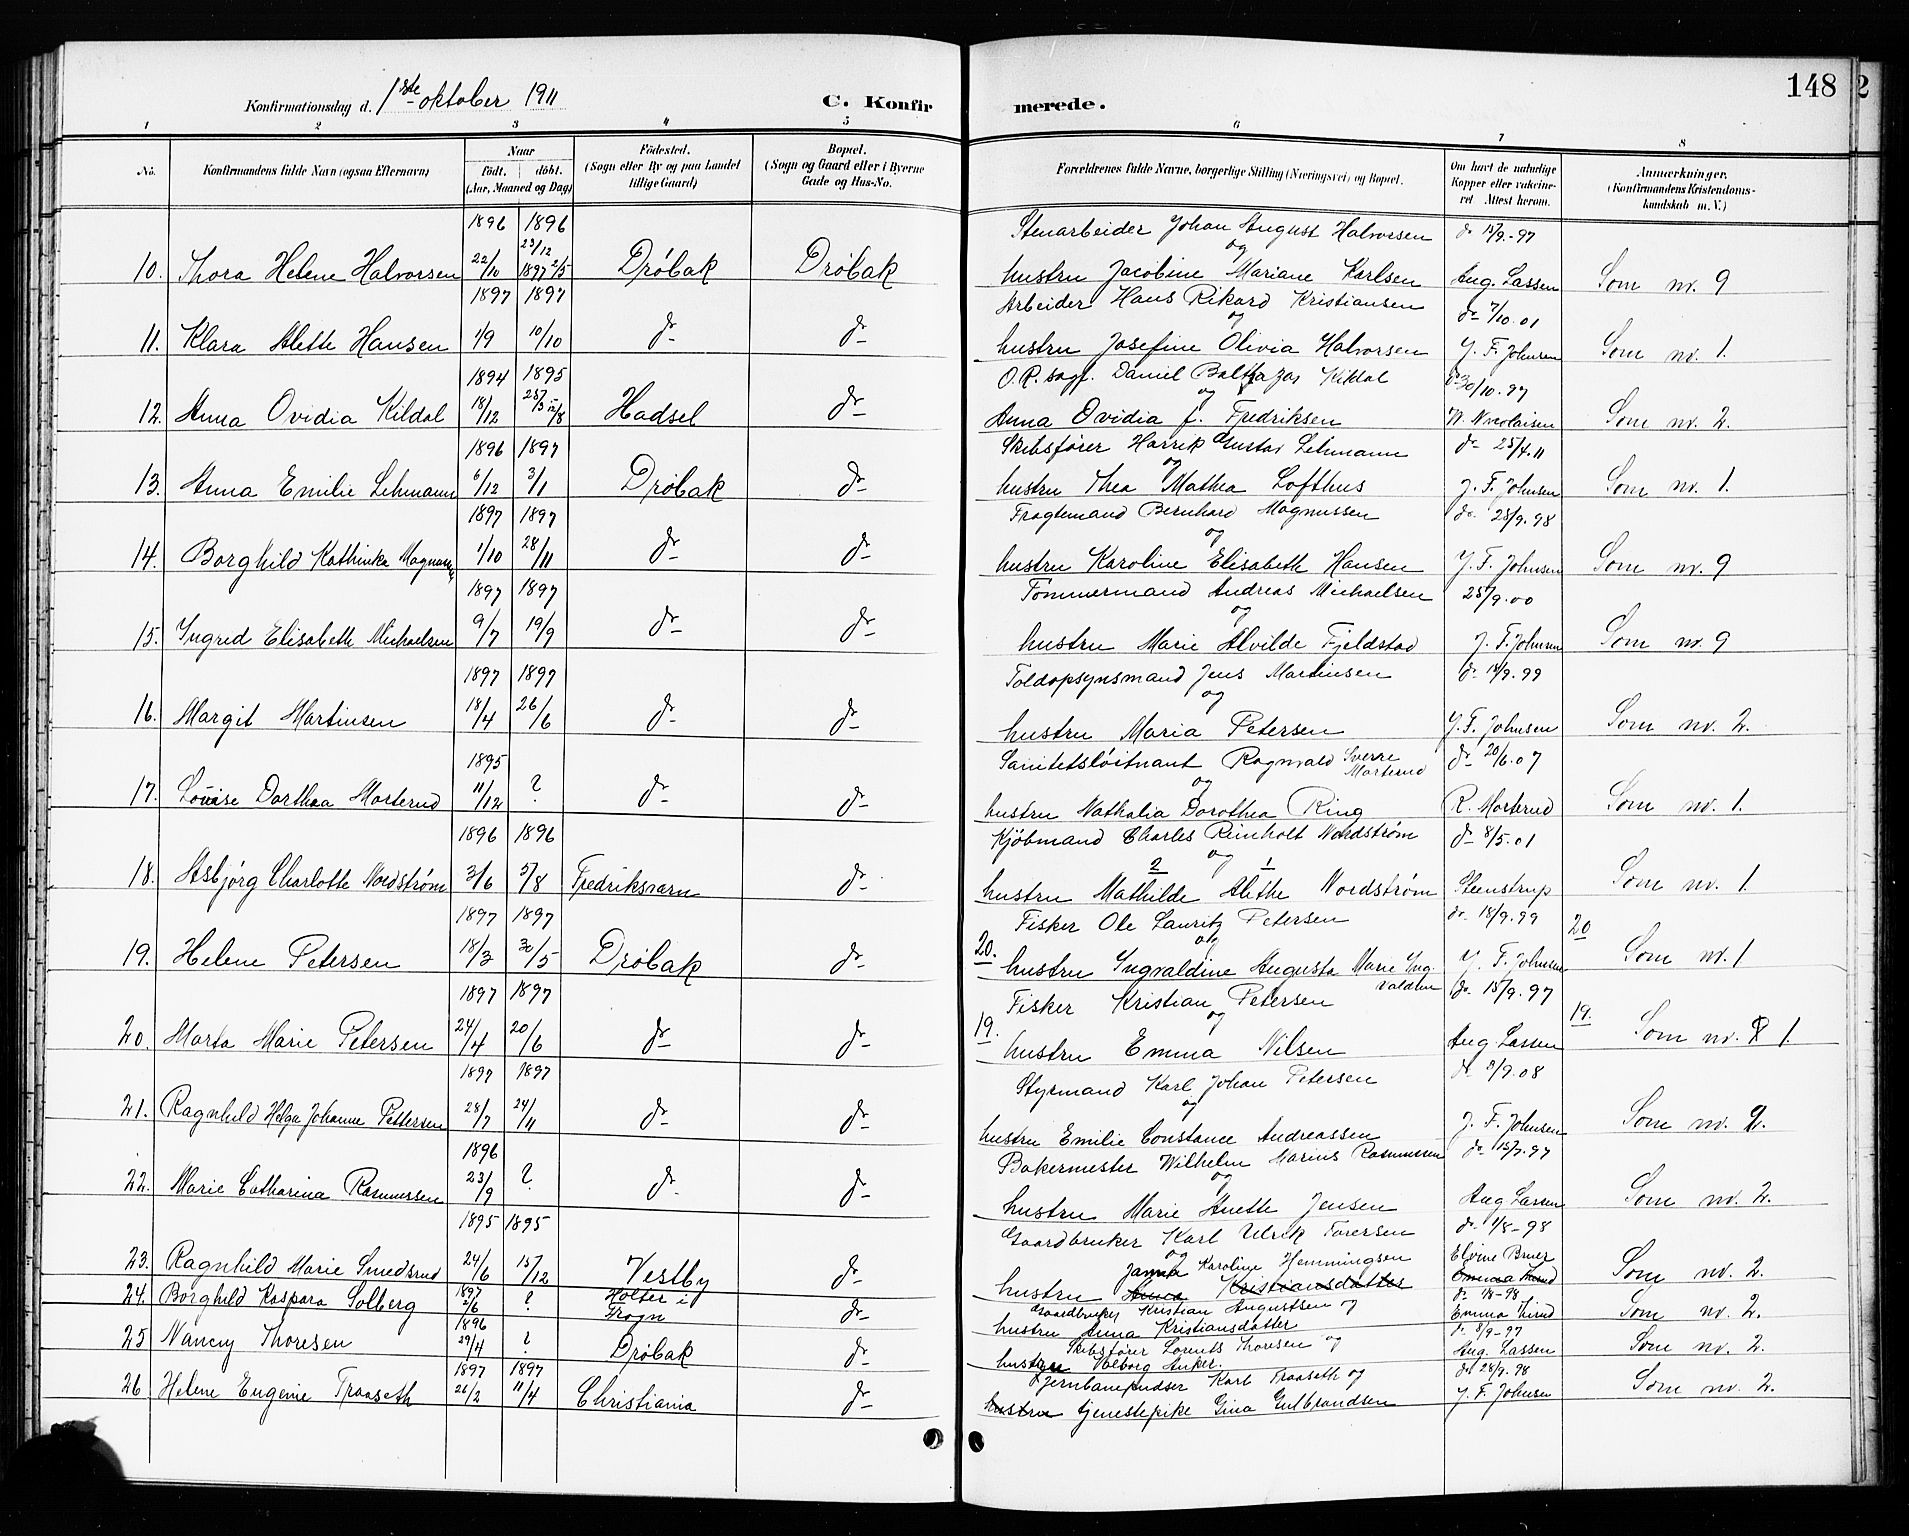 148
2
Konfirmationsdag d. 1ste oktober 1911
C. Konfirmerede.
1 2 3 4 5 6 7 8
No.
Konfirmandens fulde Navn (ogsaa Efternavn)
Naar
Født. døbt.
(Aar, Maaned og Dag)
Fødested.
(Sogn eller By og paa Landet
tillige Gaard)
Bopæl.
(Sogn og Gaard eller i Byerne
Gade og Hus-No.
Forældrenes fulde Navne, borgerlige Stilling (Næringsvei) og Bopæl.
Om havt de naturlige
Kopper eller vakcine-
ret Attest herom.
Anmærkninger.
(Konfirmandens Kristendoms-
kundskab m. V.)
1896 1896 Stenarbeider Johan August Halvorsen do 15/9-97
23/12 og
10. Thora Helene Halvorsen 22/10 1897 2/5 Drøbak Drøbak hustru Jacobine Mariane Karlsen Aug. Lassen Som nr. 9
1897 1897 Arbeider Hans Rikard Kristiansen do 7/10.01
og
11. Klara Alette Hansen 1/9 10/10 do do hustru Josefine Olivia Halvorsen J. F. Johnsen Som nr. 1.
1894 1895 O.R. sagf. Daniel Balthazar Kildal do 30/10.97
og
12. Anna Ovidia Kildal 18/12 Hadsel do Anna Ovidia f. Fredriksen N. Nicolaisen Som nr. 2.
1896 1897 Skibsfører Harrik Gustav Lehmann do 25/4.11
og
13. Anna Emilie Lehmann 6/12 3/1 Drøbak do hustru Thea Mathea Lofthus J. F. Johnsen Som nr. 1.
1897 1897 Fragtemand Bernhard Magnussen do 28/9.98
og
14. Borghild Kathinka Magnussen 1/10 28/11 do do hustru Karoline Elisabeth Hansen J. F. Johnsen Som nr. 9
1897 1897 Tømmermand Andreas Michaelsen 25/9.00
og
15. Yngred Elisabeth Michaelsen 9/7 19/9 do do hustru Marie Alvilde Fjeldstad J. F. Johnsen Som nr. 9
1897 1897 Toldopsynsmand Jens Martinsen do 14/9.99
og
16. Margit Martinsen 18/4 26/6 do do hustru Maria Petersen J. F. Johnsen Som nr. 2.
1895 Sanitetsløitnant Ragnvald Sverre Morterud do 20/6.07
og
17. Louise Dorthea Morterud 11/12 ? do do hustru Nathalia Dorothea Ring R. Morterud Som nr. 1.
1896 1896 Kjøbmand Charles Reinholt Nordstrøm do 8/5.01
og
2 1
18. Asbjørg Charlotte Nordstrøm 3/6 5/8 Fredriksvarn do hustru Mathilde Alethe Nordstrøm Steenstrup Som nr. 1
1897 1897 Fisker Ole Lauritz Petersen do 18/9.99
og 20
19. Helene Petersen 18/3 30/5 Drøbak do 20. hustru Ingvaldine Augusta Marie Ingvaldsen J. F. Johnsen Som nr. 1
1897 1897 Fisker Kristian Petersen do 15/9.97
og 19.
20. Marta Marie Petersen 24/4 20/6 do do 19. hustru Emma Nilsen Aug. Lassen Som nr. 1.
1897 1897 Styrmand Karl Johan Petersen do 3/9.08
og
21. Ragnhild Helga Johanne Pettersen 28/7 24/11 do do hustru Emilie Constance Andreassen J. F. Johnsen Som nr. 2.
1896 Bakermester Wilhelm Marius Rasmussen do 15/7.97
og
22. Marie Catharina Rasmussen 23/9 ? do do hustru Marie Anette Jensen Aug Lassen Som nr. 2.
1895 1895 Gaardbruker Karl Ulrik Toresen do 1/8-98
og Janna Karoline Hemmingsen Elvine Bruer
23. Ragnhild Marie Smedsrud 24/6 15/12 Vestby do hustru Anna Kristiansdatter Emma Lund Som nr. 2.
1897 Gaardbruker Kristian Augustsen og do 1/8-98
24. Borghild Kaspara Solberg 2/6 ? Holter i Frogn do hustru Anna Kristiansdatter Emma Lund Som nr. 2.
1896 Skibsfører Lorents Thoresen og do 8/9-97
25 Nancy Thoresen 29/4 ? Drøbak do hustru Valborg Anker. Aug. Lassen Som nr. 2.
1897 1897 Karl Traaseth og do 28/9.98
26 Helene Eugenie Traaseth 26/2 11/4 Christiania do hustru tjenestepike Gina Gulbrandsen J. F. Johnsen Som nr. 2.